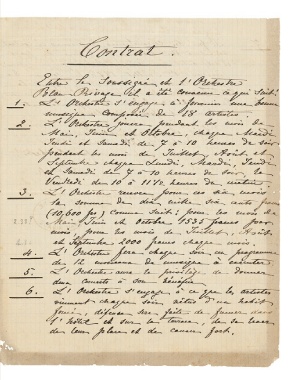 Contrat.
Entre le Soussigné et l'Orchestre
il a été convenu ce qui suit:
1. L'Orchestre s'engage à fournir une bonne
musique composée de 18 artistes
2. L'Orchestre jouera pendant les mois de
Mai, Juin et Octobre, chaque Mardi
Jeudi et Samedi de 7 à 10 heures du soir
pendant les mois de Juillet, Août et
Septembre chaque Lundi, Mardi, Jeudi
et Samedi de 7 à 10 heures du soir, le
Vendredi de 10 à 11 1/2 heures du matin.
3. L'Orchestre recevra pour ces dix mois
la somme de dix mille six cents francs
(10,600 frs) comme suit: pour les mois de
Mai, Juin et Octobre 1535 francs par
mois, pour les mois de Juillet, Août
et Septembre 2000 francs chaque mois
4. L'Orchestre fera chaque soir un programme
de 12 morceaux de musique à exécuter.
5. L'Orchestre aura le privilège de donner
deux concerts à son bénéfice
6. L'Orchestre s'engage à ce que les artistes
viennent chaque soir vêtus d'un habit
noir, défense sera faite de fumer dans
l'hôtel et sur la terrasse, de se lever
de leur place et de causer fort.